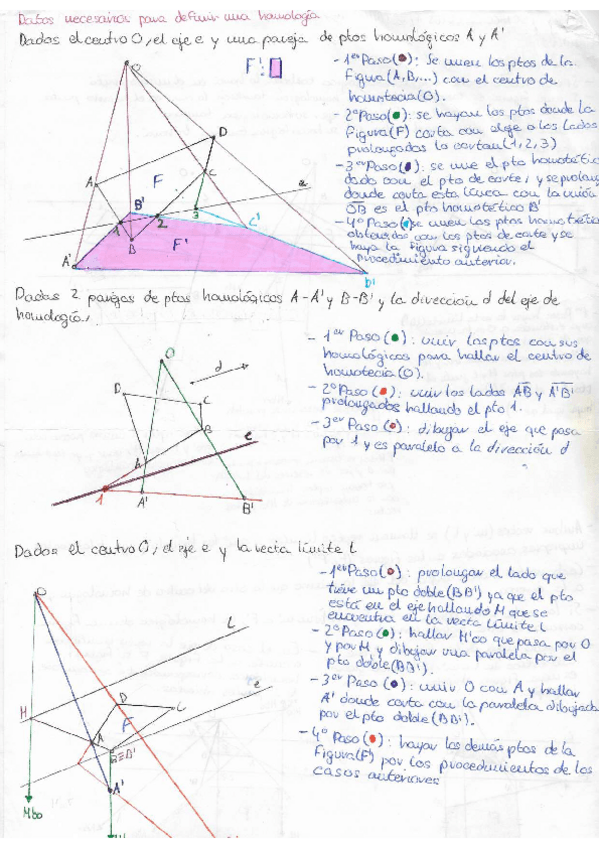 Datos necesarios para definir una homología
Dados el centro O, el eje e y una pareja de ptos homológicos A y A'
F':
- 1er Paso(): Se unen los ptos de la
Figura (A, B, ...) con el centro de
homotecia (O).
- 2º Paso(): se hayan los ptos donde la
Figura (F) corta con el eje o los lados
prolongados lo cortan (1, 2, 3)
- 3er Paso(): se une el pto homotético
dado con el pto de corte, y se prolonga
donde corta esta línea con la unión
OB es el pto homotético B'
- 4º Paso() se unen los ptos homotéticos
obtenidos con los ptos de corte y se
haya la figura siguiendo el
procedimiento anterior.
O
D
A
F
C
e
B'
1
2
3
C'
B
F'
A'
D'
Dadas 2 parejas de ptos homológicos A-A' y B-B' y la dirección d del eje de
homología.
- 1er Paso(): unir los ptos con sus
homológicos para hallar el centro de
homotecia (O).
- 2º Paso(): unir los lados AB y A'B'
prolongados hallando el pto 1.
- 3er Paso(): dibujar el eje que pasa
por 1 y es paralelo a la dirección d
O
d
D
C
B
e
A
1
A'
B'
Dados el centro O, el eje e y la recta límite l
- 1er Paso(): prolongar el lado que
tiene un pto doble (BB') ya que el pto
está en el eje hallando M que se
encuentra en la recta límite l
- 2º Paso(): hallar M'∞ que pasa por O
y por M y dibujar una paralela por el
pto doble (BB').
- 3er Paso(): unir O con A y hallar
A' donde corta con la paralela dibujada
por el pto doble (BB').
- 4º Paso(): hayar los demás ptos de la
Figura (F) por los procedimientos de los
casos anteriores
O
l
e
M
D
F
C
A
B≡B'
A'
M'∞